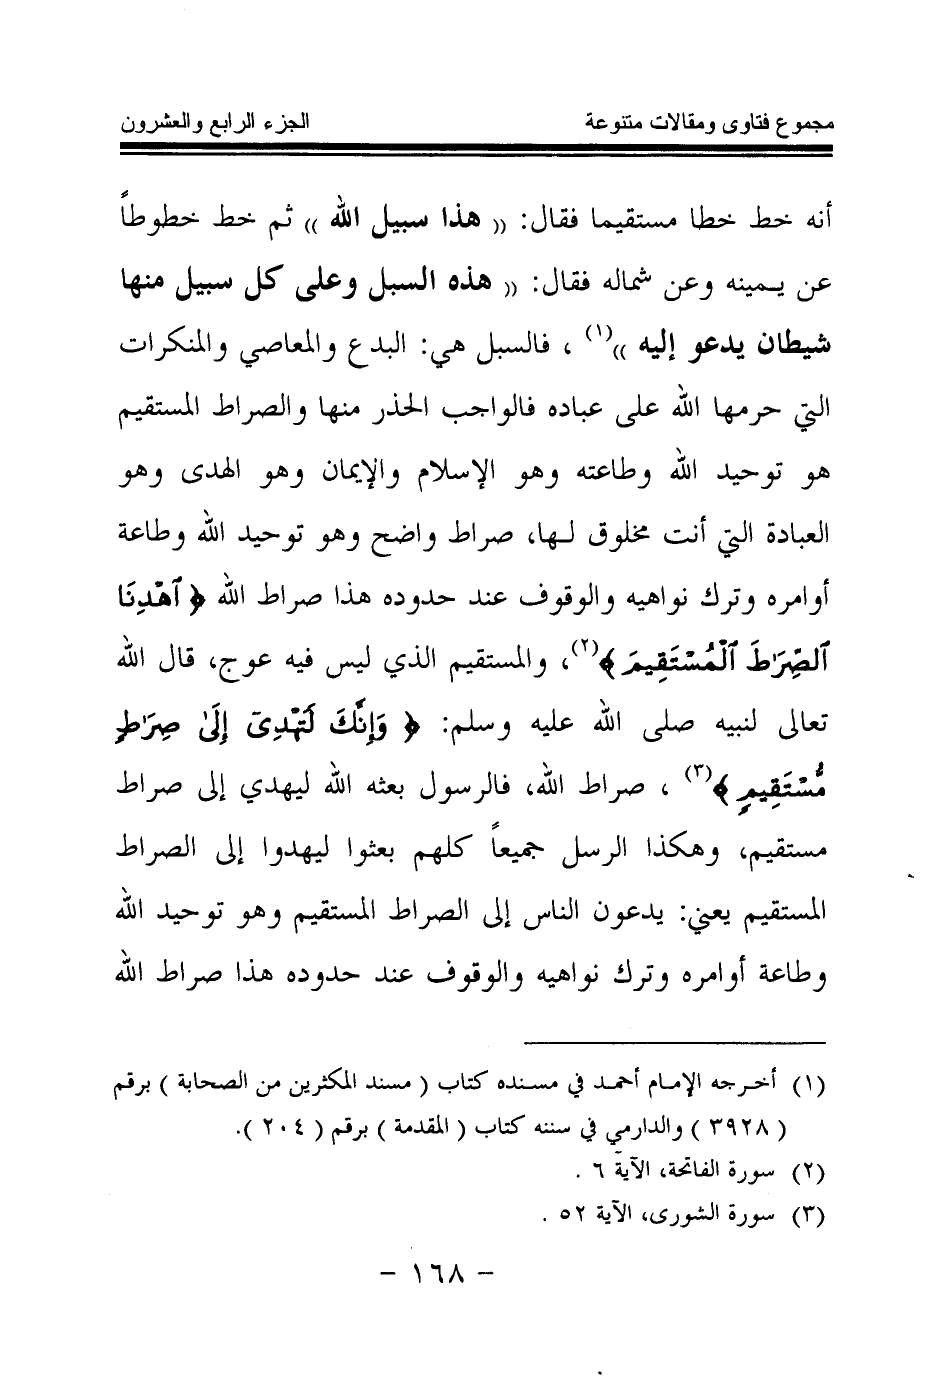 مجموع فتاوى ومقالات متنوعة الجزء الرابع والعشرون
أنه خط خطا مستقيما فقال: (( هذا سبيل الله )) ثم خط خطوطاً
عن يـمينه وعن شماله فقال: (( هذه السبل وعلى كل سبيل منها
شيطان يدعو إليه ))(١) ، فالسبل هي: البدع والمعاصي والمنكرات
التي حرمها الله على عباده فالواجب الحذر منها والصراط المستقيم
هو توحيد الله وطاعته وهو الإسلام والإيمان وهو الهدى وهو
العبادة التي أنت مخلوق لـها، صراط واضح وهو توحيد الله وطاعة
أوامره وترك نواهيه والوقوف عند حدوده هذا صراط الله ﴿ ٱهْدِنَا
ٱلصِّرَٰطَ ٱلْمُسْتَقِيمَ ﴾(٢)، والمستقيم الذي ليس فيه عوج، قال الله
تعالى لنبيه صلى الله عليه وسلم: ﴿ وَإِنَّكَ لَتَهْدِىٓ إِلَىٰ صِرَٰطٍ
مُّسْتَقِيمٍ ﴾(٣) ، صراط الله، فالرسول بعثه الله ليهدي إلى صراط
مستقيم، وهكذا الرسل جميعاً كلهم بعثوا ليهدوا إلى الصراط
المستقيم يعني: يدعون الناس إلى الصراط المستقيم وهو توحيد الله
وطاعة أوامره وترك نواهيه والوقوف عند حدوده هذا صراط الله
(١) أخـرجه الإمـام أحمـد في مسـنده كتاب ( مسند المكثرين من الصحابة ) برقم
( ٣٩٢٨ ) والدارمي في سننه كتاب ( المقدمة ) برقم ( ٢٠٤ ).
(٢) سورة الفاتحة، الآية ٦ .
(٣) سورة الشورى، الآية ٥٢ .
- ١٦٨ -